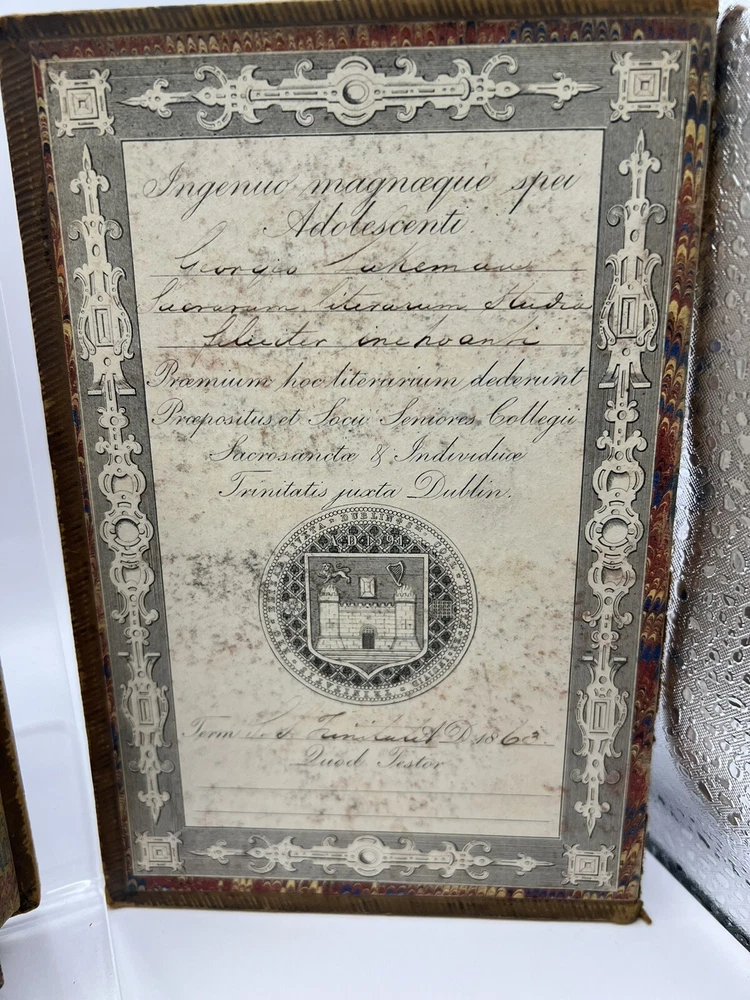 Ingenuo magnæque spei
Adolescenti
Georgio
Sacrarum literarum Studia
feliciter inchoanti
Præmium hoc literarium dederunt
Præpositus et Socii Seniores Collegii
Sacrosanctæ & Individuæ
Trinitatis juxta Dublin.
DUBLIN
A.D. 1591
Term S. S. Trinitatis A D 1863.
Quod Testor